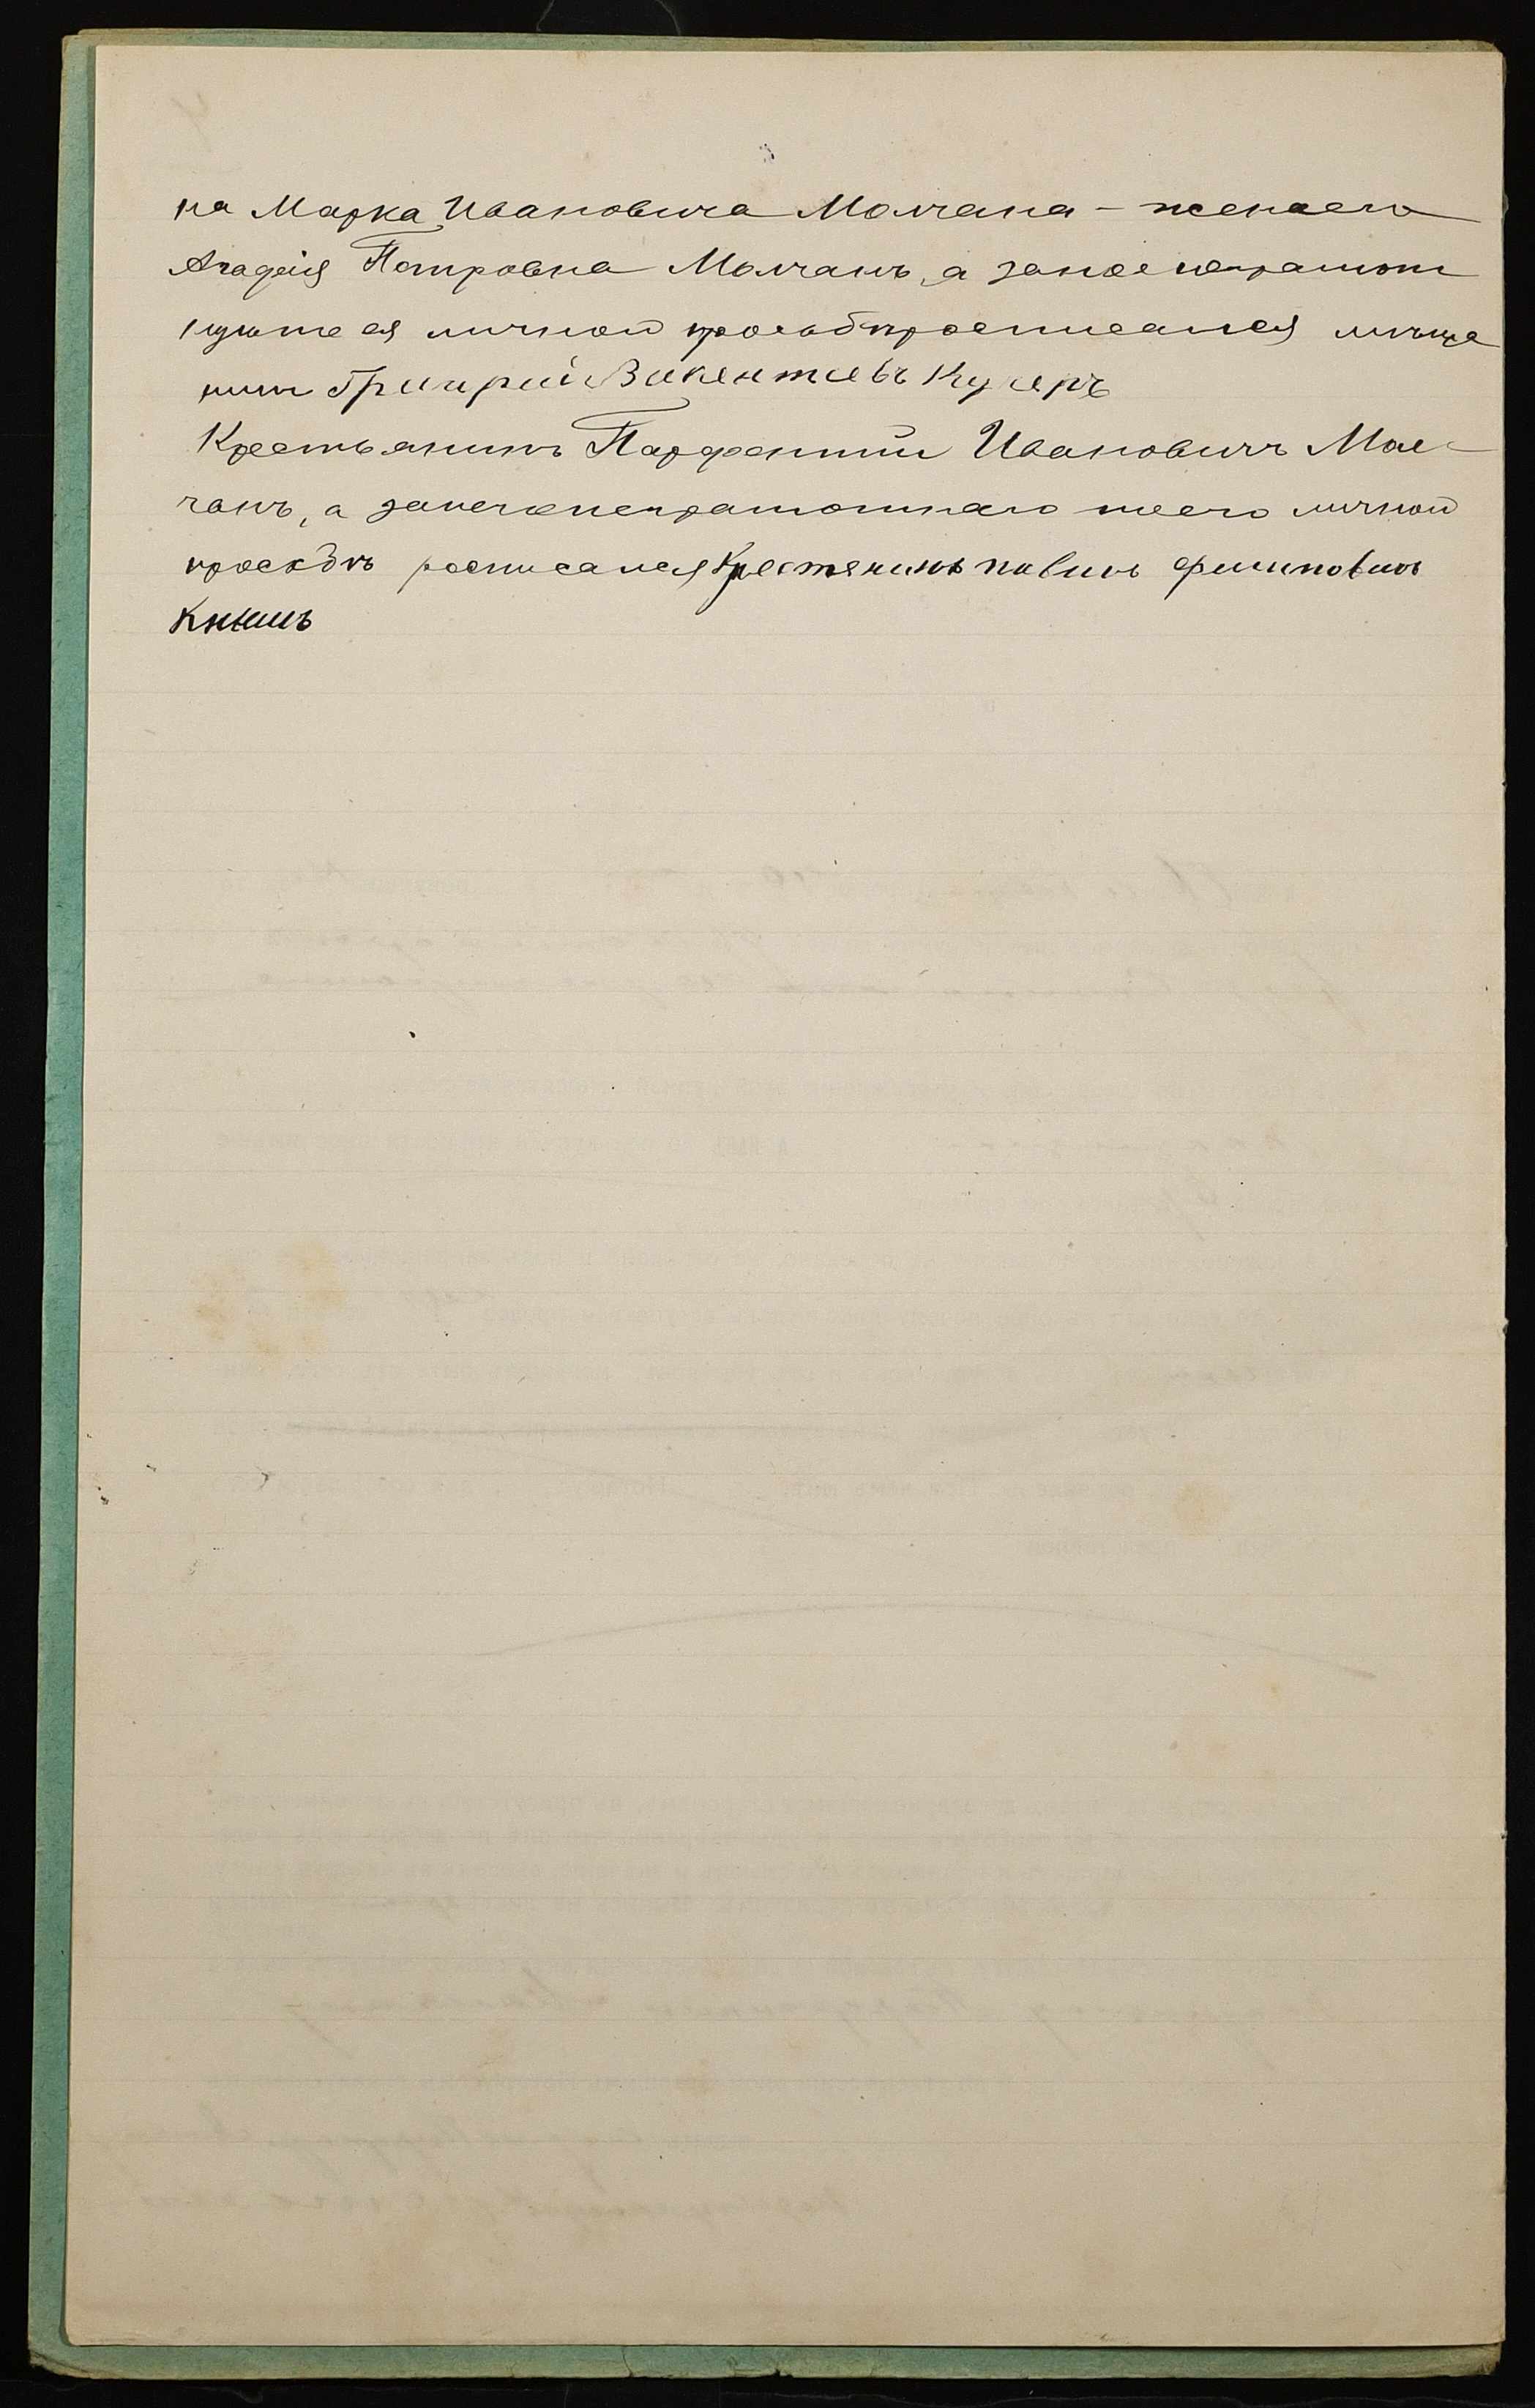 на Марка Ивановича Молчана - жена его
Агафія Петровна Молчанъ, а за нее неграмот
ную по ея личной просьбѣ росписался мѣща
нинъ Григрий Викентиевъ Кучеръ
Крестьянинъ Парфентій Ивановичъ Мол-
чанъ, а за него неграмотнаго по его личной
просьбѣ росписался Крестянинъ Филиповичъ
Кнышъ